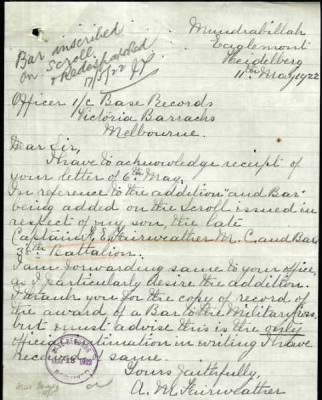 Bar inscribed
on Scroll
& Redespatched
17/5/22
Mundrabillah
Eaglemont
Heidelberg
11th May 1922
Officer i/c Base Records
Victoria Barracks
Melbourne.
Dear Sir,
I have to acknowledge receipt
of your letter of 6th May.
In reference to the addition "and Bar"
being added on the Scroll issued in
respect of my son, the late
Captain F. E. Fairweather M.C. and Bar
38th Battalion.
I am forwarding same to your office,
as I particularly desire the addition.
I thank you for the copy of record of
the award of a Bar to the Military Cross.
but must advise this is the only
official intimation in writing I have
received of same.
Yours faithfully,
A. M. Fairweather